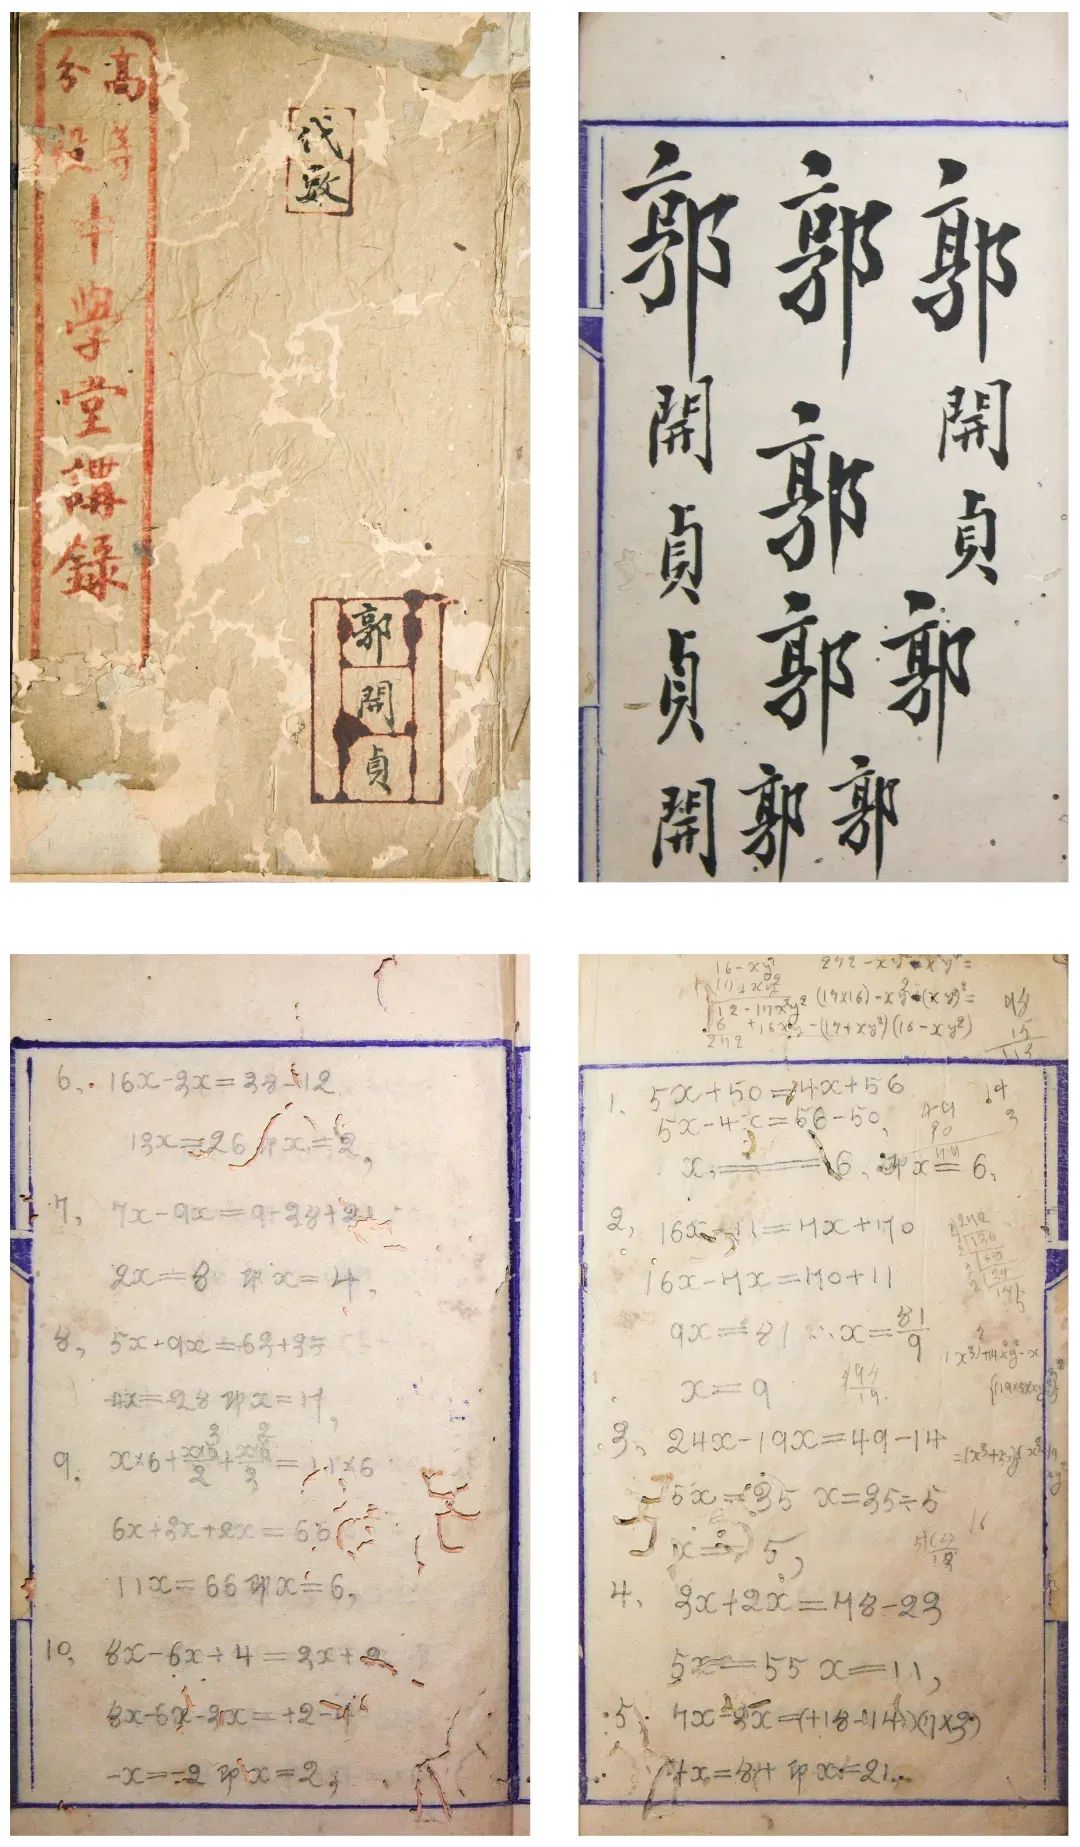 高等
分設
中學堂講錄
代數
郭開貞
郭開貞
郭
郭
郭
郭
郭
郭
郭開貞
貞
開
6. 16x-3x=38-12
13x=26 即x=2,
7, 7x-9x=9-38+21
2x=8 即x=4,
8, 5x-9x=63+35
4x=28 即x=7,
9. =11×6
6x+3x+2x=66
11x=66 即x=6,
10, 8x-6x+4=3x+2
8x-6x-3x=+2-4
-x=-2 即x=2,
(17×16)
-(17+xy²)(16-xy²)
1. 5x+50=4x+56
5x-4x=56-50,
x=6. 即x=6,
2, 16x-11=7x+70
16x-7x=70+11
9x=81 ∴x=81/9
x=9
3, 24x-19x=49-14
5x=35 x=35÷5
x= 5,
4, 3x+2x=78-23
5x=55 x=11,
5 7x-3x=(+18-14)(7×3)
4x=84 即x=21.